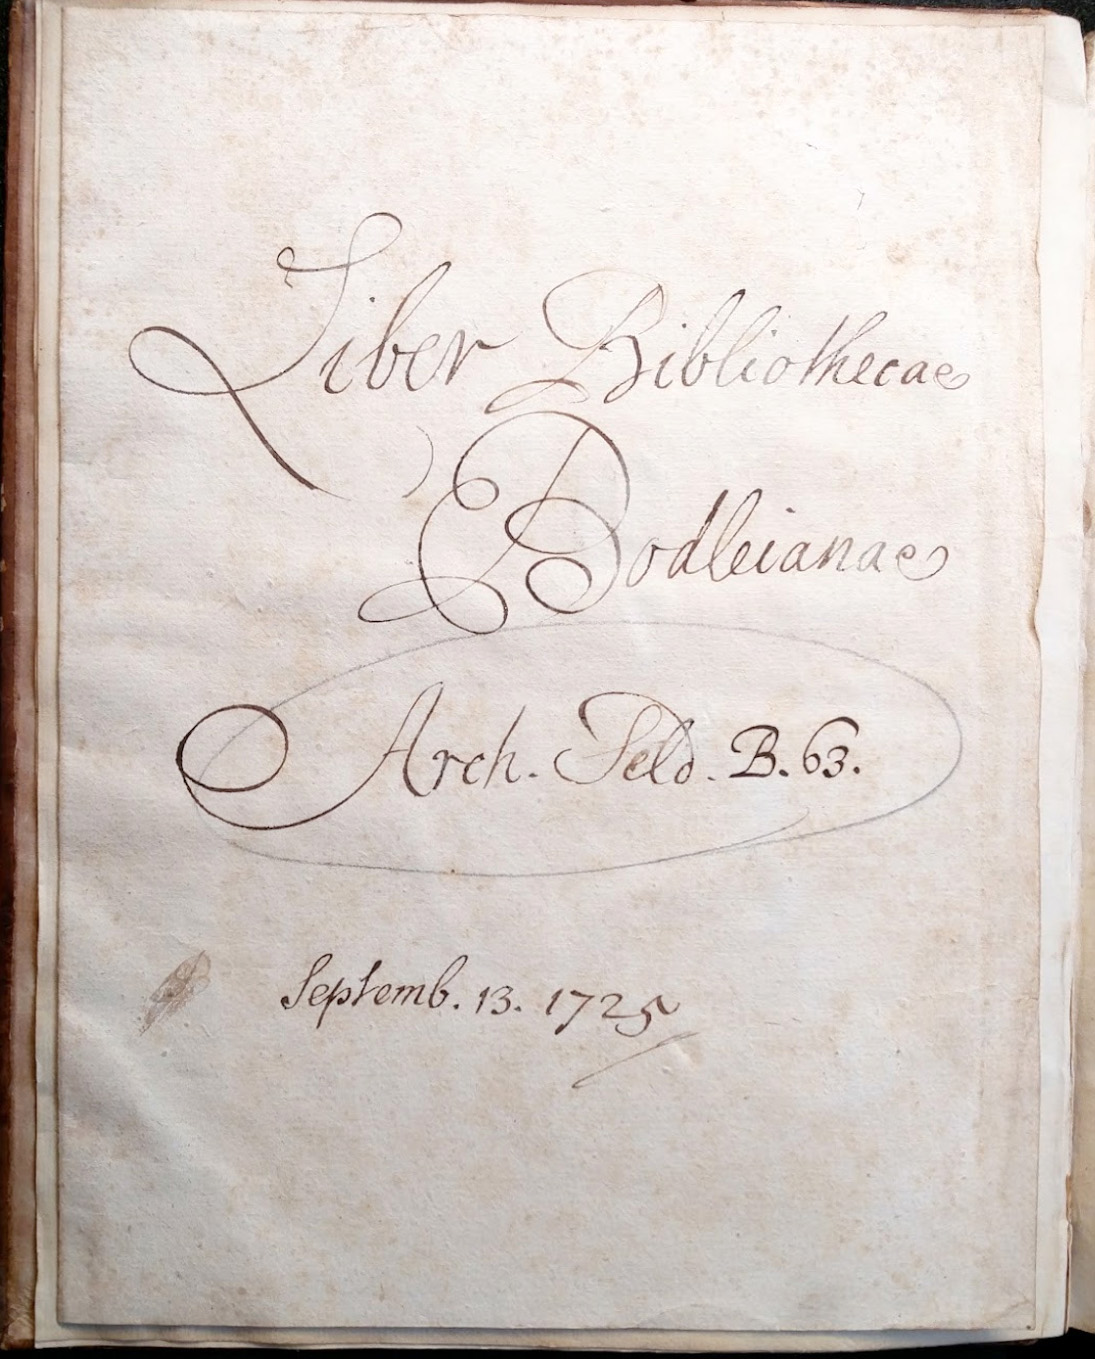 Liber Bibliothecae
Bodleianae
Arch. Seld. B. 63.
Septemb. 13. 1725